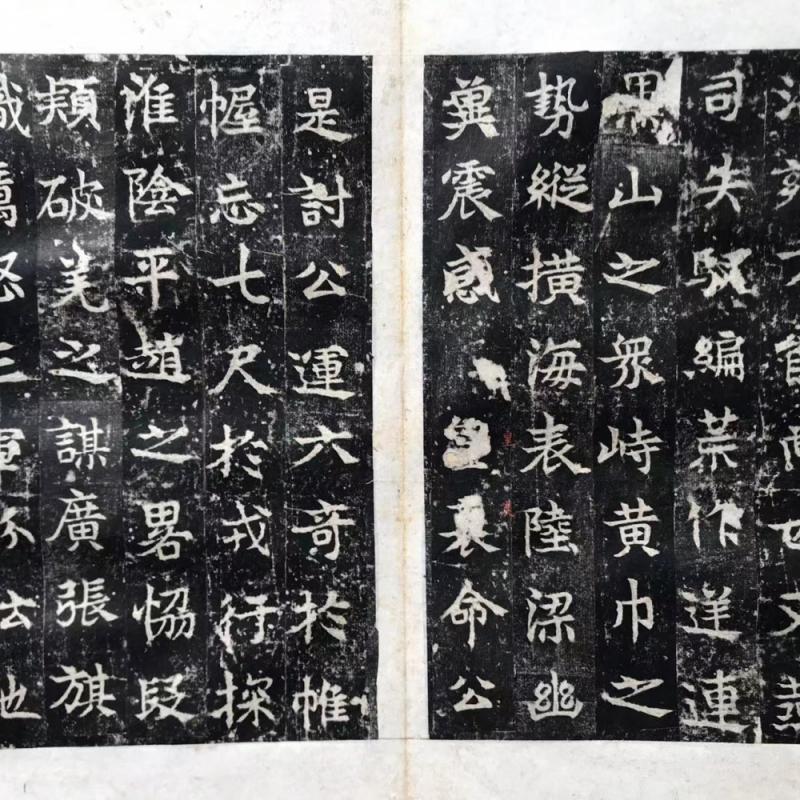 司失馭編菜作逆連
黑山之衆峙黄巾之
勢縱橫海表陸梁幽
冀震惑皇衷命公
是討公運六奇於帷
幄忘七尺於戎行探
淮陰平趙之畧協段
熲破羌之謀廣張旗
幟厲怒三軍